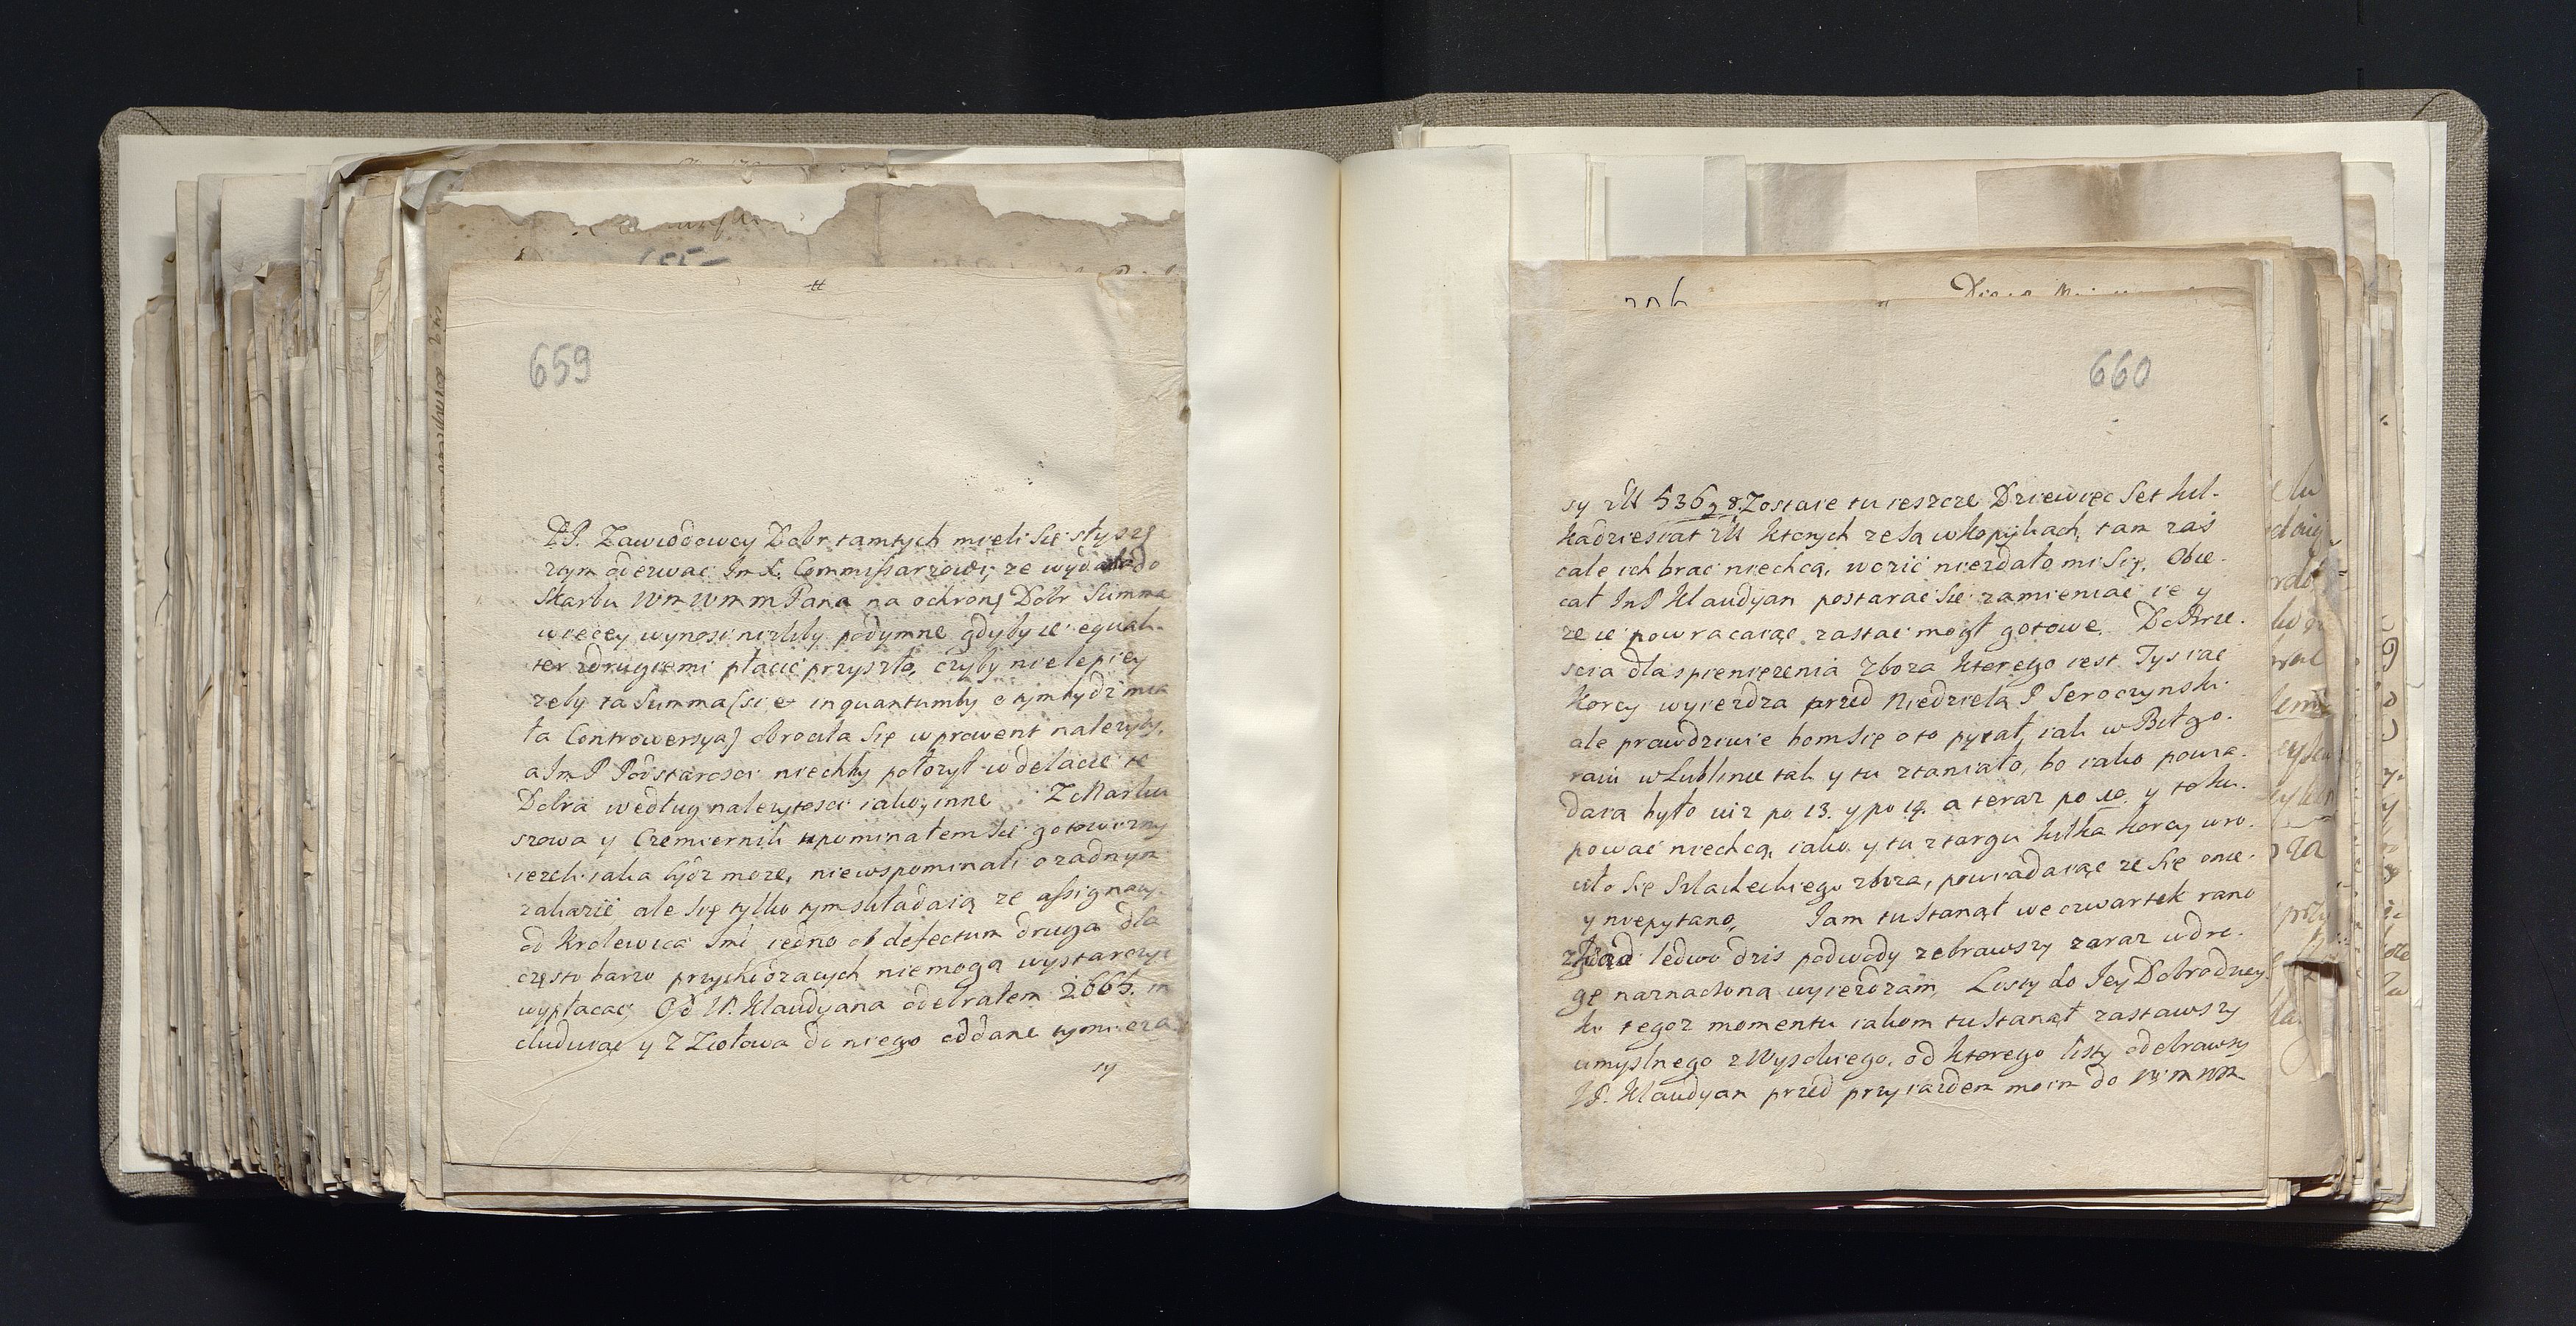 #
659
PP. Zawiadowcy Dobr tamtych mieli się słyszę
z tym odezwać Im X. Commissarzowi, ze wydatek do
Skarbu Wm Wm m Pana na ochronę Dobr Summa
wiecey wynosi nizliby podymne gdyby ie equali-
ter z drugiemi płacić przyszło, czyby nie lepiey
zeby ta Summa (si et inquantumby o tym tydz miała
ta Controwersya) obrociła się w prowent nalezyty,
a Im P Podstarosci niechby połozył w delacie te
Dobra według nalezytosci iako inne Z Marku
szowa y Czemiernik upominałem się gotowizny
iezeli iaka bydz moze, niewspominali o zadnym
zakazie ale się tylko tym składaią ze assignacy
od Krolewica Imi iedno ob defectum druga dla
często barzo przychodzacych nie mogą wystarczyc
wypłacac, Od P. Klaudyana odebrałem 2665. in
cluduiąc y z Ziołowa do niego oddane
sy
660
sy zlt 536 28. Zostaie tu ieszcze Dziewięc Set kil-
kadziesiat zlt ktorych ze są w kopiykach, tam zaś
cale ich brac niechcą, wozić niezdało mi się, Obie-
cał Im P Klaudyan postarać się zamieniać ie y
ze ie powracaiąc zastac mogł gotowe. Do Brze-
scia dla spieniezenia zboza ktorego iest Tysiac
korcy wyiezdza przed Niedzielą P Seroczynski
ale prawdziwie bom się o to pytał, iak w Biłgo-
raiu w Lublinie tak y tu ztaniało, bo iako powia-
daia było iuz po 13. y po 14. a teraz po 10. y to ku-
powac niechcą, iako y tu z targu kilka korcy wro-
ciło się Szlacheckiego zboza, powiadaiąc ze się o nie
y niepytano, Iam tu stanął we czwartek rano
zkąd ledwo dzis podwody zebrawszy zaraz w dro-
gę naznaczoną wyiezdzam, Listy do Iey Dobrodziey
ki tegoz momentu iakom tu stanął zastawszy
umyslnego z Wysokiego, od ktorego listy odebrawszy
IP. Klaudyan przed przyiazdem moim do Wm Wm